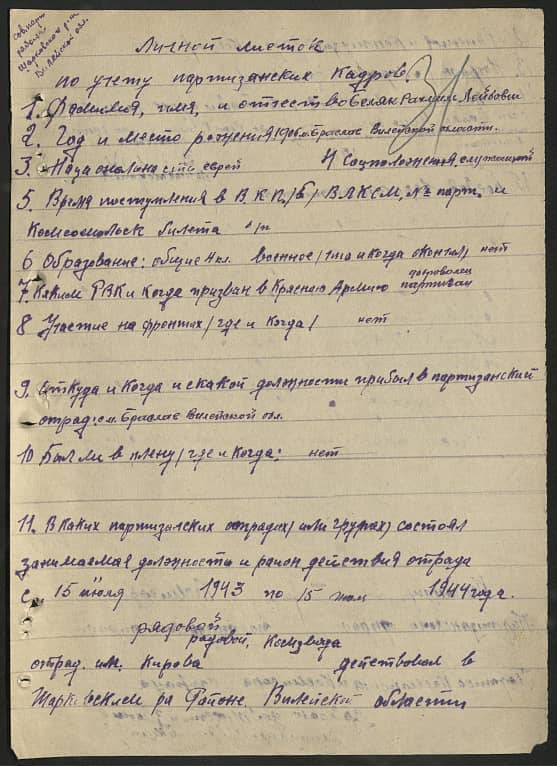 Совпарт
работн
Шарковского р-на
Вилейской обл.
Личной листок
по учету партизанских Кадров
1. Фамилия, имя, и отчество Беляк Рахмил Лейбович
2. Год и место рожения 1906 м. Браслав Вилейской области.
3. Национальность еврей 4 Соцположения, служащий
5. Время поступления в В.К.П./б/ ВЛКСМ, № парт. и
Комсомольск билета б/п
6 Образование: общие 4 кл. военное/что и когда окончил/ нет
доброволец
7. Каким РВК и когда призван в Красною Армию партизан
8 Участие на фронтах/где и когда/ нет
9. Откуда и когда и скакой должности прибыл в партизанский
отряд: м. Браслав Вилейской обл.
10 Был ли в плену/где и когда: нет
11. В каких партизанских отрядах/или групах/ состоял
занимаемая должность и район действия отряда
с 15 июля 1943 по 15 1944 года.
рядовой
рядовой, Комзвода
отряд. им. Кирова действовал в
Районе Вилейской области